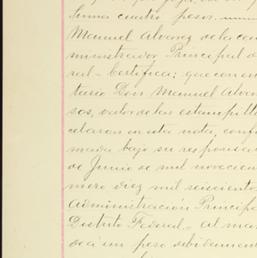 suma cuatro pesos.
Manuel Alvarez de la can
ministrador Principal d
ral - Certifica: que con es
tario Don Manuel Alvar
sos, valor de las estampill
celaron en esta nota, conf
mada bajo su responsa
de Junio de mil novecien
mero diez mil seiscientos
Administración Principa
Distrito Federal.- al ma
de á un peso debidamen